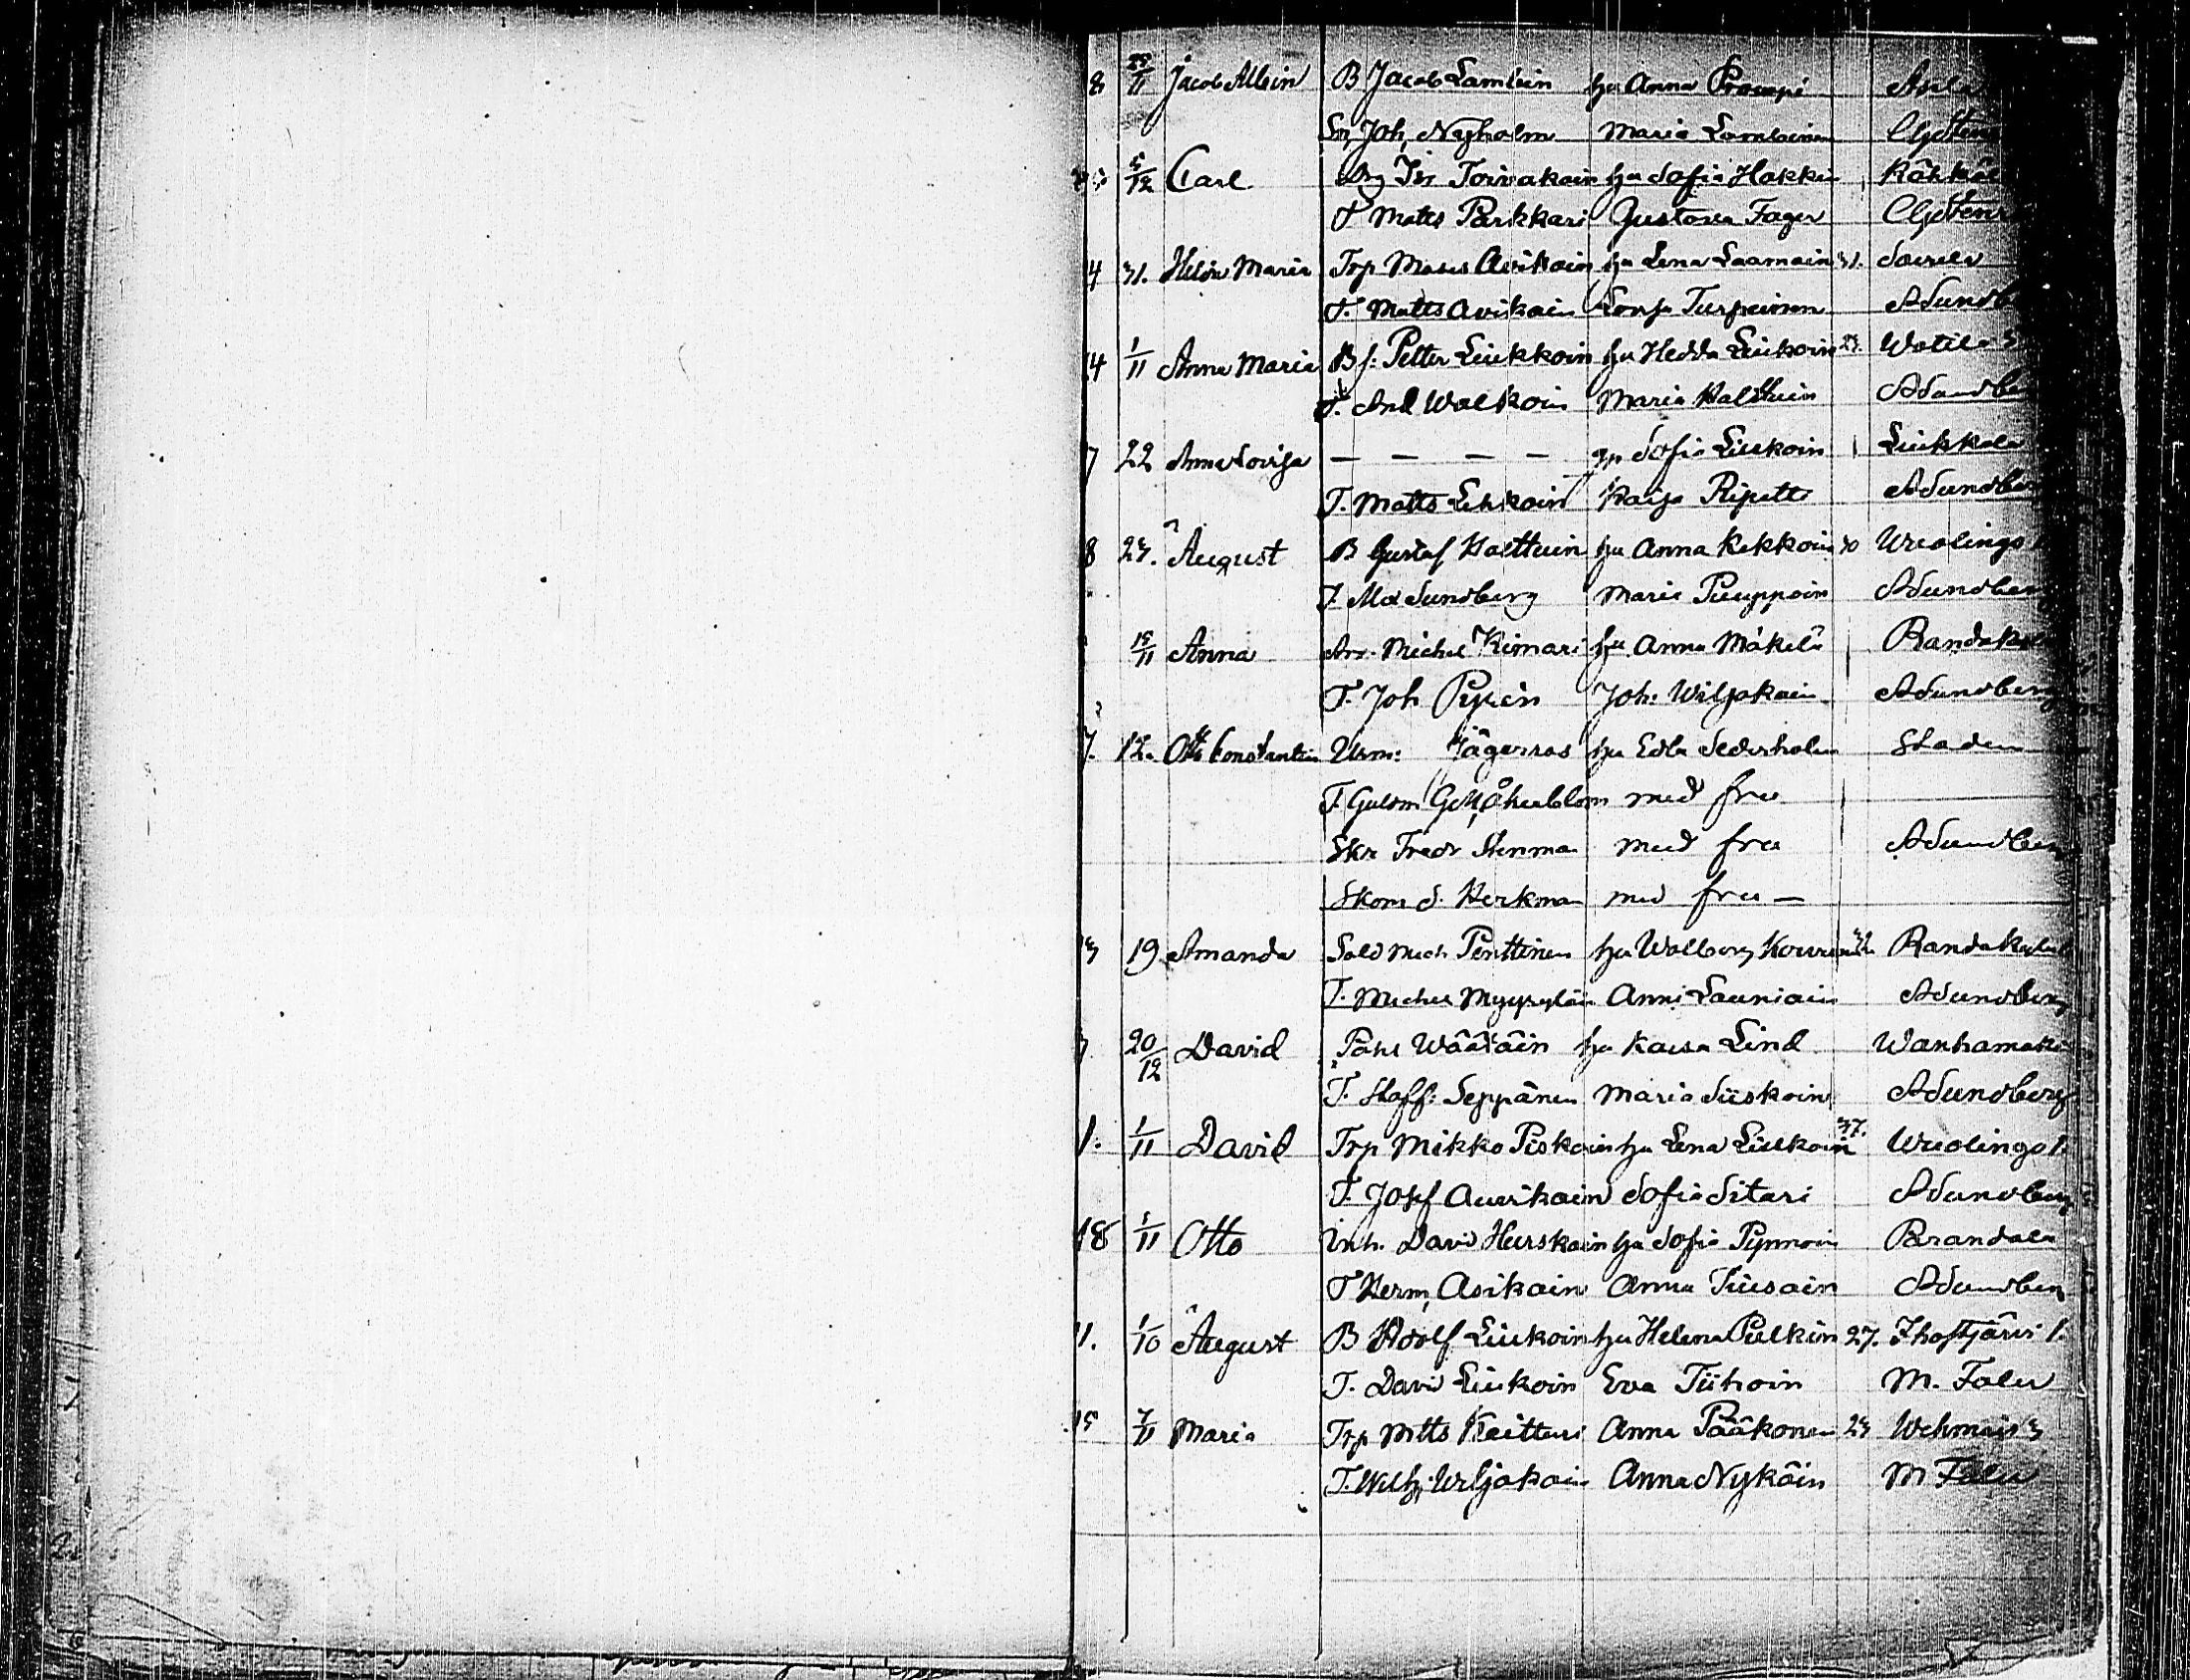 8 28/11 Jacob Albin B Jacob Lamlein hu Anna Prompi Asila
Joh. Nyholm Maria Lamlainen
5/12 Carl Isr Toivakain hu Sofia Hakkin
T Matts Parkkari Gustava Fager
4 31. Helen Maria Trp Moses Avikain hu Lena Laamain 31. Sairila
T. Matts Avikain Lovisa Turpeinen ASundb
14 1/11 Anna Maria B s: Petter Liukkoin hu Hedda Liukoin 23. Watila
T. And Walkoin Maria Halttuin ASundbe
7 22 Anna Lovisa — — — — qp Sofia Liukoin Liukkala
T. Matts Liukoin Kaisa Ripatti ASundber
8 23. August B Gustaf Halttuin hu Anna Kekkoin 30 Wuolings
T. Alex Sundberg Maria Puuppoin ASundberg
15/11 Anna Arr. Michel Kimari hu Anna Mäkelä Randakyl
T. Joh Pyrein Joh: Wiljakain ASundberg
7. 12. Otto Constantin Urm: Jägerros hu Edla Sederholm Staden
T. Guldsm med fru
Skr Fredr Stenman med fru ASundberg
Skom S. Herkman med fru —
3 19 Amanda Sold Mich Penttinen hu Walborg Randakylä
T. Michel Myyryläin Anni Launiain ASundberg
7 20/12 David Påhl Wäätäin hu Kaisa Lind Wanhamäki
T. Staff: Seppänen Maria Siiskoin ASundberg
1. 1/11 David Trp Mikko Piskoin hu Lena Liukoin 37. Wuolings 1.
T. Josef Auvikain Sofia Sitari ASundberg
18 1/11 Otto Inh. David Hurskain hu Sofia Pynnoin Brandala
T Herm, Asikain Anna Tiusain ASundberg
11. 1/10 August B Adolf Liukoin hu Helena Pulkin 27. Ihastjärvi 1.
T. David Liukoin Eva Tiihoin M. Faler
15 7/11 Maria Trp Mtts Keitturi Anna Pääkonen 23 Wehmais 3
T. Wilh; Wiljakain Anna Nykäin M Faler